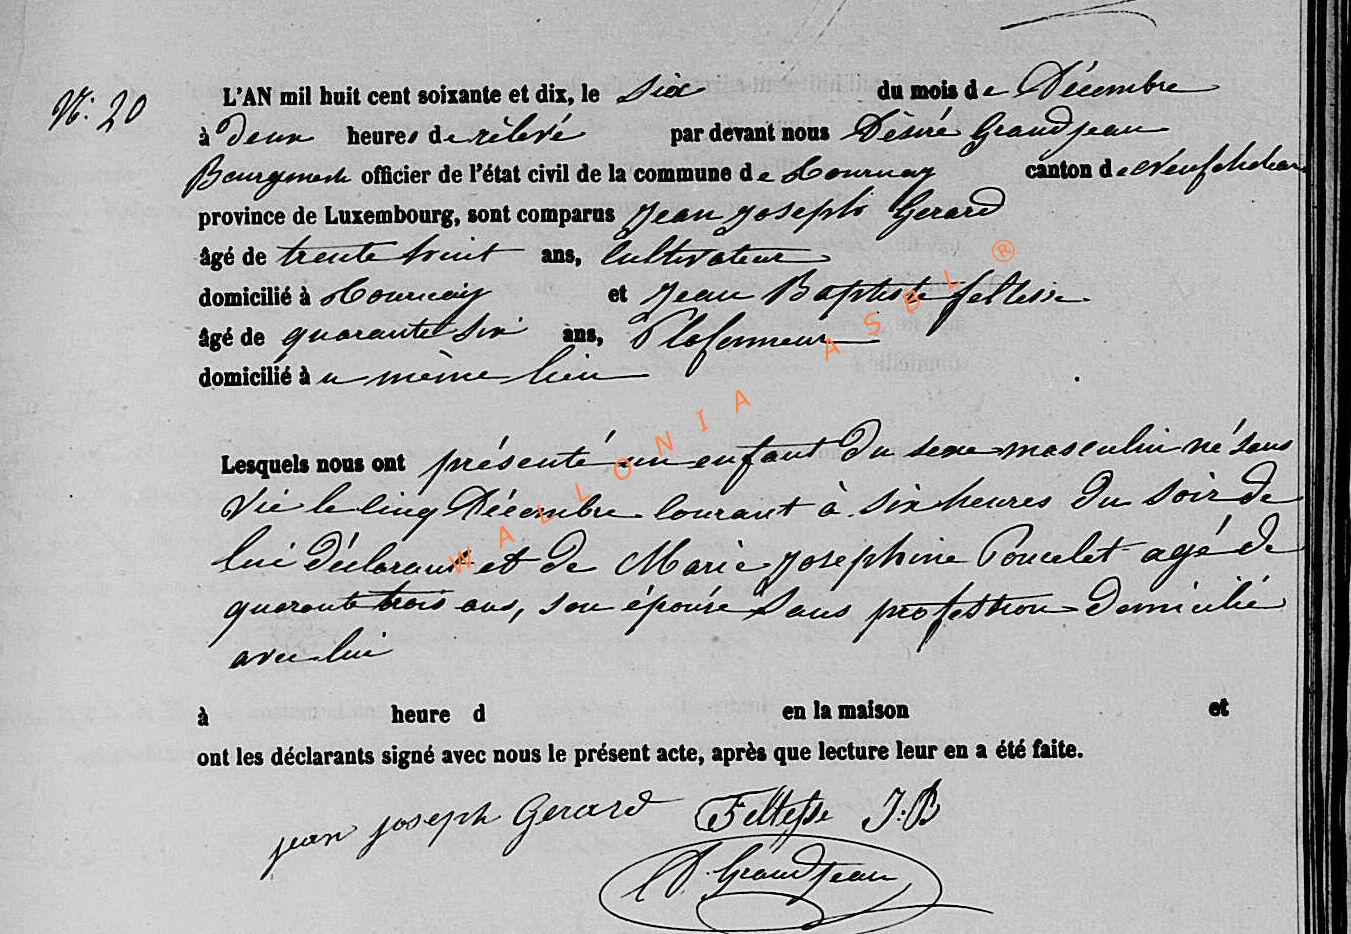 N.° 20
L'AN mil huit cent soixante et dix, le six du mois de Décembre
à deux heures de rélevé par devant nous Désiré Grandjean
Bourgmestre officier de l'état civil de la commune de Tournay canton de Neufchateau
province de Luxembourg, sont comparus Jean Joseph Gerard
âgé de trente huit ans, Cultivateur
domicilié à Tournay et Jean Baptiste Feltesse
âgé de quarante six ans, Plafonneur
domicilié à u même lieu
Lesquels nous ont présenté un enfant du sexe masculin né sans
vie le cinq Décembre courant à six heures du soir de
lui déclarant et de Marie Josephine Poncelet agé de
quarante trois ans, son épouse sans profession domicilié
avec lui
à heure d en la maison et
ont les déclarants signé avec nous le présent acte, après que lecture leur en a été faite.
jean joseph Gerard Feltesse J.B
D. Grandjean
WALLONIA ASBL ®